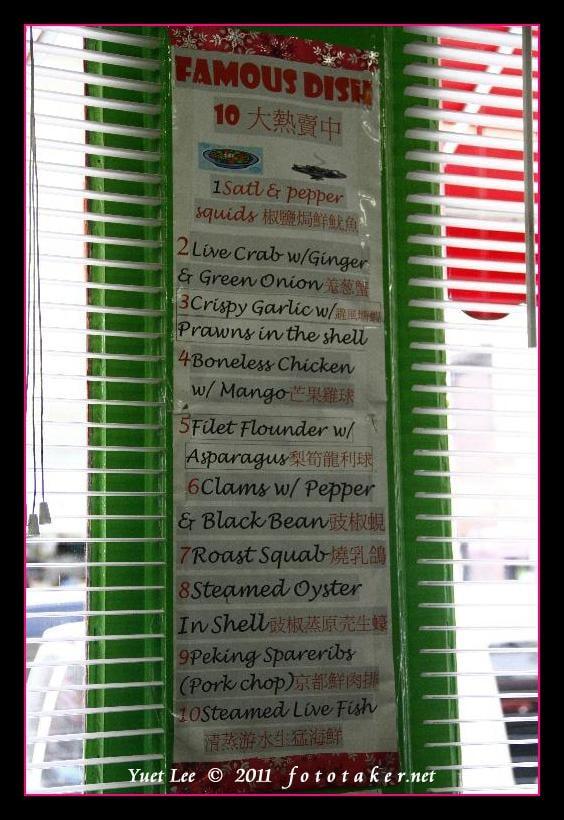 FAMOUS DISH
10 大熱賣中
1Satl & pepper
squids 椒鹽焗鮮魷魚
2Live Crab w/Ginger
& Green Onion 羗葱蟹
3Crispy Garlic w/避風塘蝦
Prawns in the shell
4Boneless Chicken
w/ Mango芒果雞球
5Filet Flounder w/
Asparagus梨筍龍利球
6Clams w/ Pepper
& Black Bean豉椒蜆
7Roast Squab燒乳鴿
8Steamed Oyster
In Shell豉椒蒸原壳生蠔
9Peking Spareribs
(Pork chop)京都鮮肉排
10Steamed Live Fish
清蒸游水生猛海鮮
Yuet Lee © 2011 fototaker.net